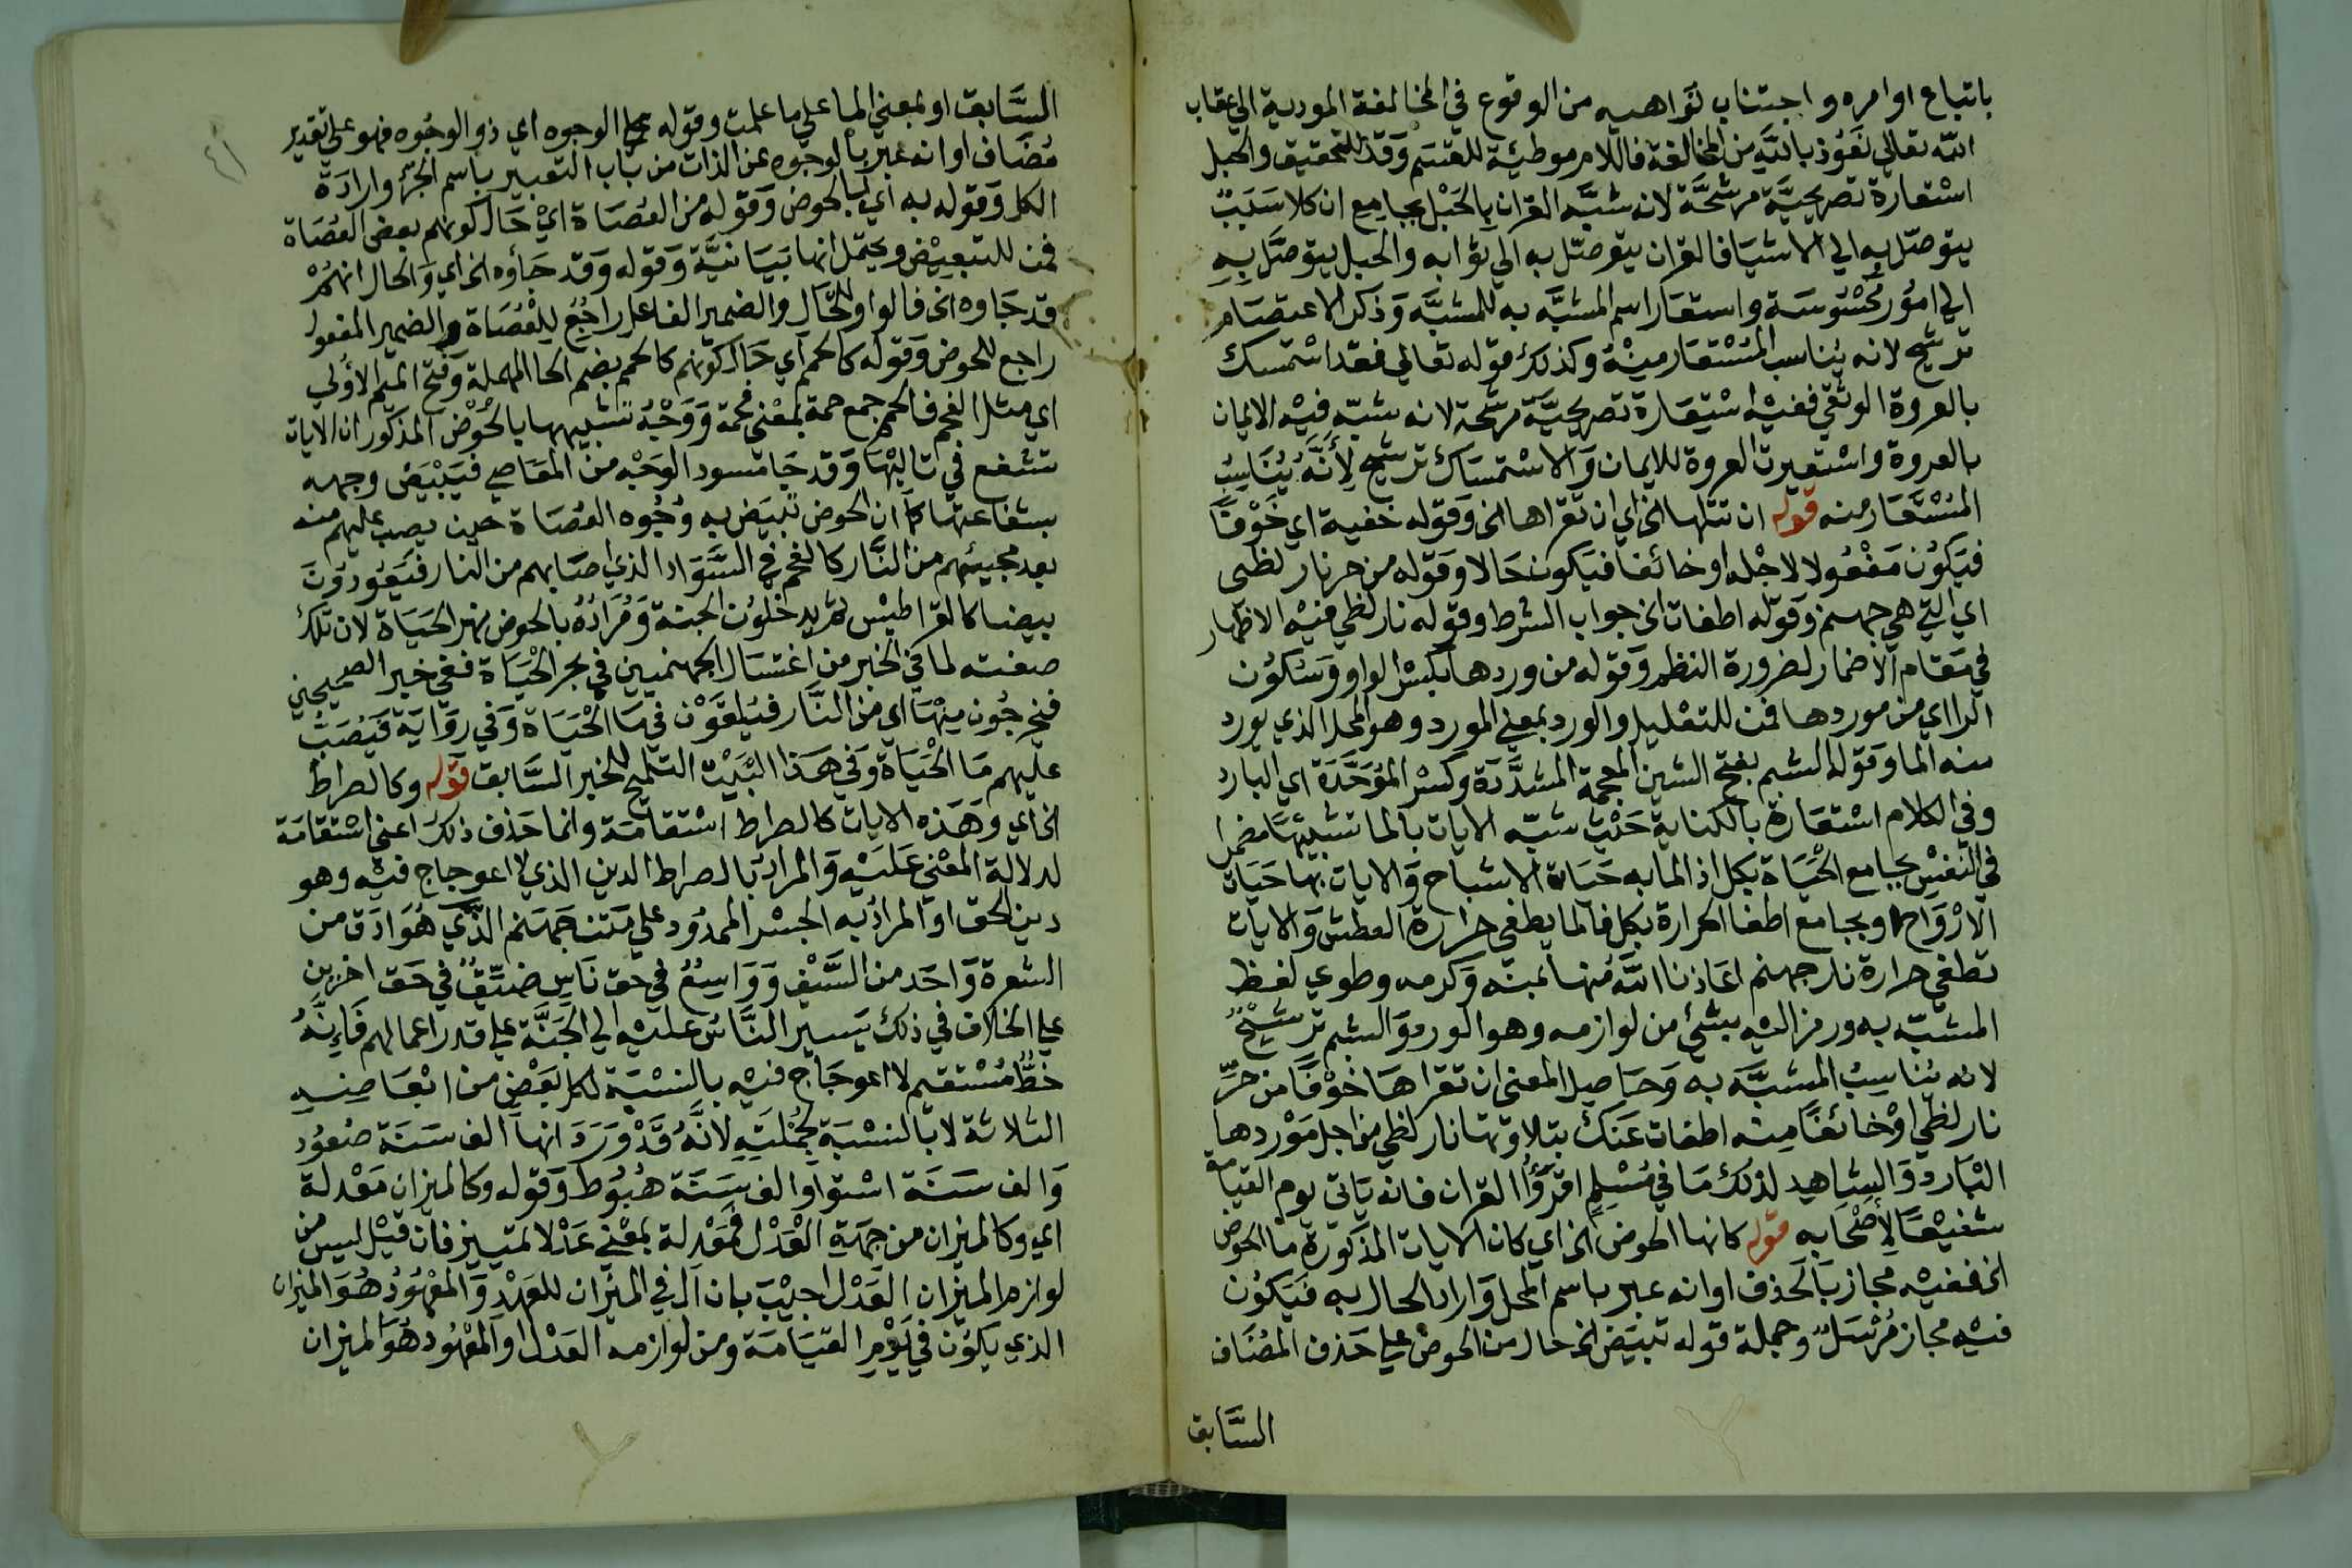 باتباع اوامره واجتناب نواهيه من الوقوع في المخالفة المودية الي عقاب
الله تعالي نعوذ بالله من المخالفة فاللام موطئة للقسم وقد للتحقيق والحبل
استعارة تصريحيّة مرشحّة لانه شبّه القران بالحبل بجامع ان كلا سَبَبٌ
يتوصّل به الي الاشيا فالقران يتوصّل به الي ثوابه والحبل يتوصَّل بِهِ
الي امور محسُوسَة واستعَار اسم المشبّه به للمشبَّه وَذكر الاعتصَام
ترشيح لانه يُناسب المُسْتعَار مِنْهُ وكذلك قوله تعالي فقد اسْتمسك
بالعروة الوثقي ففيْه اسْتِعَارة تصريحيَّة مرشحة لانه شبّه فيْه الايمان
بالعروة واسْتعيرت العروة للايمان وَالاسْتمسَاك ترشيح لِأَنَّهُ يُنَاسِبُ
المُسْتَعَار منه قوله ان تتلها الخ اي ان تقراها الخ وقوله خفية اي خَوْفًا
فيَكُون مَفْعُولا لاجْله او خائفا فيَكون حَالا وَقوله من حر نار لظى
اي التي هي جهنم وَقوله اطفات الخ جواب الشرط وقوله نار لظي فيْه الاظهار
في مَقام الاضمار لضرورة النظم وَقوله من وردها بكسْر الواو وَسكُون
الرا اي من موردها فمن للتعْليل والورد بمعني المورد وهو المحل الذي يورد
منه الما وَقوله الشبم بفتح الشين المعجمة المشدَّدَة وكسْر المُوَحَّدَة اي البارد
وفي الكلام اسْتعَارة بالكناية حَيْث شبّه الايات بالما تشبيهًا مضمرا
في النفيس بجامع الحَيَاة بكل اذ الما به حَيَاة الاشباح وَالايات بها حَيَاة
الارْوَاح او بجامع اطفا الحرارة بكل فالما يطفي حرارة العطش وَالايات
تطفي حرارة نار جهنم اعَاذنا اللَّه مُنها بمنه وَكرمه وطوي لفظ
المشبّه به ورمز اليْه بشيْء من لوازمه وهو الورد وَالشبم ترشِيحٌ
لانه يُناسِبُ المشبَّه به وَحَاصِل المعنى ان تقراهَا خَوْفًا من حرِّ
نار لظي اوْ خائفًا مِنه اطفات عَنَك بتلاوتها نار لظي من اجل مَوْردها
البَارد وَالشاهِد لذلك مَا في مُسْلِم اقرؤُا القران فانه يَاتي يوم القيامة
شفيْعًا لأصْحَابه قوله كانها الحوض الخ اي كان الايات المذكورة ما الحوض
الخ ففيْه مجاز بالحذف او انه عبر باسم المحل وَاراد الحال به فيَكُون
فيْه مجاز مُرْسَل وجملة قوله تبيَض الخ حال من الحوض علي حَذف المضَاف
السَّابق
السَّابق او بمعني الما علي ما علمت وقوله محل الوجوه اي ذو الوجُوه فهو علي تقدير
مُضَاف او انه عبر بالوجوه عن الذات من بَاب التعبير باسم الجزْء وارادَة
الكل وَقوله به اي بالحوض وَقوله من العُصَاة ايْ حَال كونهم بعض العُصَاة
فمن للتبعِيْض ويحتمل انها بَيَانيَّة وَقوله وَقد جَاؤه الخ اي وَالحال انهُمْ
قد جَاوه الخ فالواو للحَال والضمير الفاعل راجِعُ لِلْعُصَاة والضمير المفعول
راجع للحوض وَقوله كالحمم اي حَال كونهم كالحمم بضم الحا المهملة وَفتح الميم الاولي
اي مثل الفحم فالحمم جمع حمة بمعْني فحمة وَوَجْهُ تشبيهها بالحُوْض المذكور ان الايات
تشفع في تاليْهَا وَقد جَا مسود الوَجْه من المعَاصِي فيَبْيَض وجهه
بشفاعتها كمَا ان الحوض تبيَض به وُجُوه العُصَاة حين يصب عليهم منه
بعد مجيئهم من النَّار كالفحم في السَّوَاد الذي اصَابهم من النار فيَعُودونَ
بيضا كالقراطيْس ثم يدخلُون الجنة وَمُرَادُهُ بالحوض نهر الحَيَاة لان تلك
صفته لما في الخبر من اغتسَال الجهنميين في بحر الحْيَاة ففي خبر الصحيحين
فيخرجُون مِنْهَا اي من النَّار فيُلقَوْن في مَا الحْيَاة وَفي روَايَة فيَُصَبُّ
عليهم مَا الحْيَاة وَفي هَذا البَيْت التلميح للخبر السَّابق قوله وكالصراط
الخ اي وَهَذه الايات كالصراط اسْتقامَة وانما حَذف ذلك اعني اسْتقامَة
لدلالة المعْني عَليْه وَالمرادُ بالصراط الدين الذي لا اعوجاج فيْه وهو
دين الحق او المرادُ به الجسْر الممدُود علي مَتن جَهَنم الذَّي هُوَ ادَق من
الشعرة وَاحَد من السَّيْف وَوَاسِعٌ في حق نَاس ضيِّقٌ في حَق اخرين
علي الخلاف في ذلك يَسير النَّاسُ عليْه الي الجَنَّة علي قدر اعمالهم فَإِنَّهُ
خطٌّ مُسْتقيم لا اعوجَاج فيْه بالنسْبَة لكل بَعْض من ابْعَاضِهِ
الثلاثة لا بالنسْبَة لجُمْلتِهِ لأنَّهُ قَدْ وَرَدَ انها الف سَنَة صُعُود
وَالف سَنَة اسْتوا وَالف سَنَة هبُوط وَقوله وكالميزان مَعْدلة
اي وكالميزان من جهَةِ العْدْل فمَعْدلة بمعْني عَدْلا تمييز فان قيْل ليسَ من
لوازم الميزان العَدْل اجيْبَ بان ال في الميزان للعَهْدِ وَالمعْهُوُد هُوَ الميزان
الذي يَكُون في يَوْمِ القيَامَة ومن لوازمه العَدْل او المعْهُود هُوَ الميزان